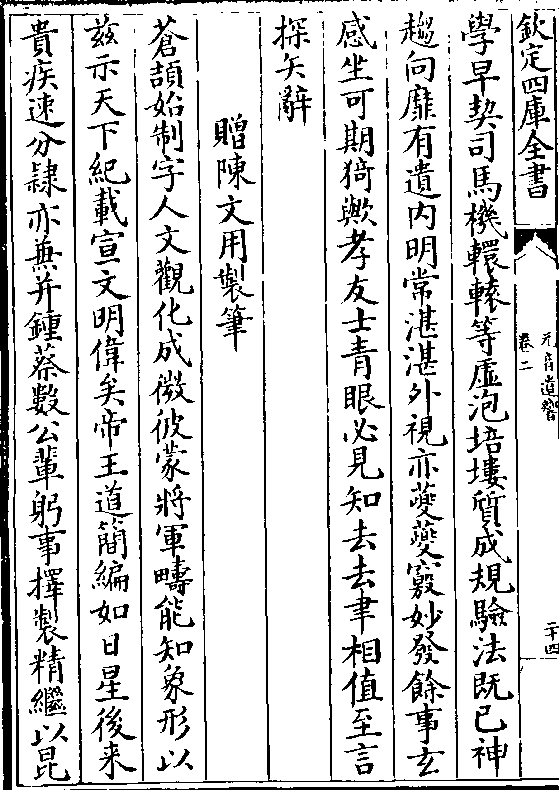 欽定四庫全書
元音遺響
卷二
二十四
學早契司馬機轘轅等虛泡培塿質成規驗法既已神
趨向靡有遺内明常湛湛外視亦夔夔竅妙發餘事玄
感坐可期猗歟孝友士青眼必見知去去聿相值至言
探矢辭
贈陳文用製筆
蒼頡始制字人文觀化成微彼蒙將軍疇能知象形以
兹示天下紀載宣文明偉矣帝王道簡編如日星後来
貴疾速分隷亦兼并鍾蔡數公輩躬事擇製精繼以昆